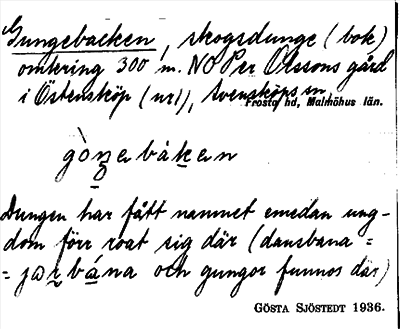 Gungebacken, skogsdunge (bok)
omkring 300 m. NO Per Olssons gård
i Östensköp (nr1), Svensköps sn,
Frosta hd, Malmöhus län.
Dungen har fått namnet emedan ung-
dom förr roat sig där (dansbana =
och gungor funnos där)
GÖSTA SJÖSTEDT 1936.